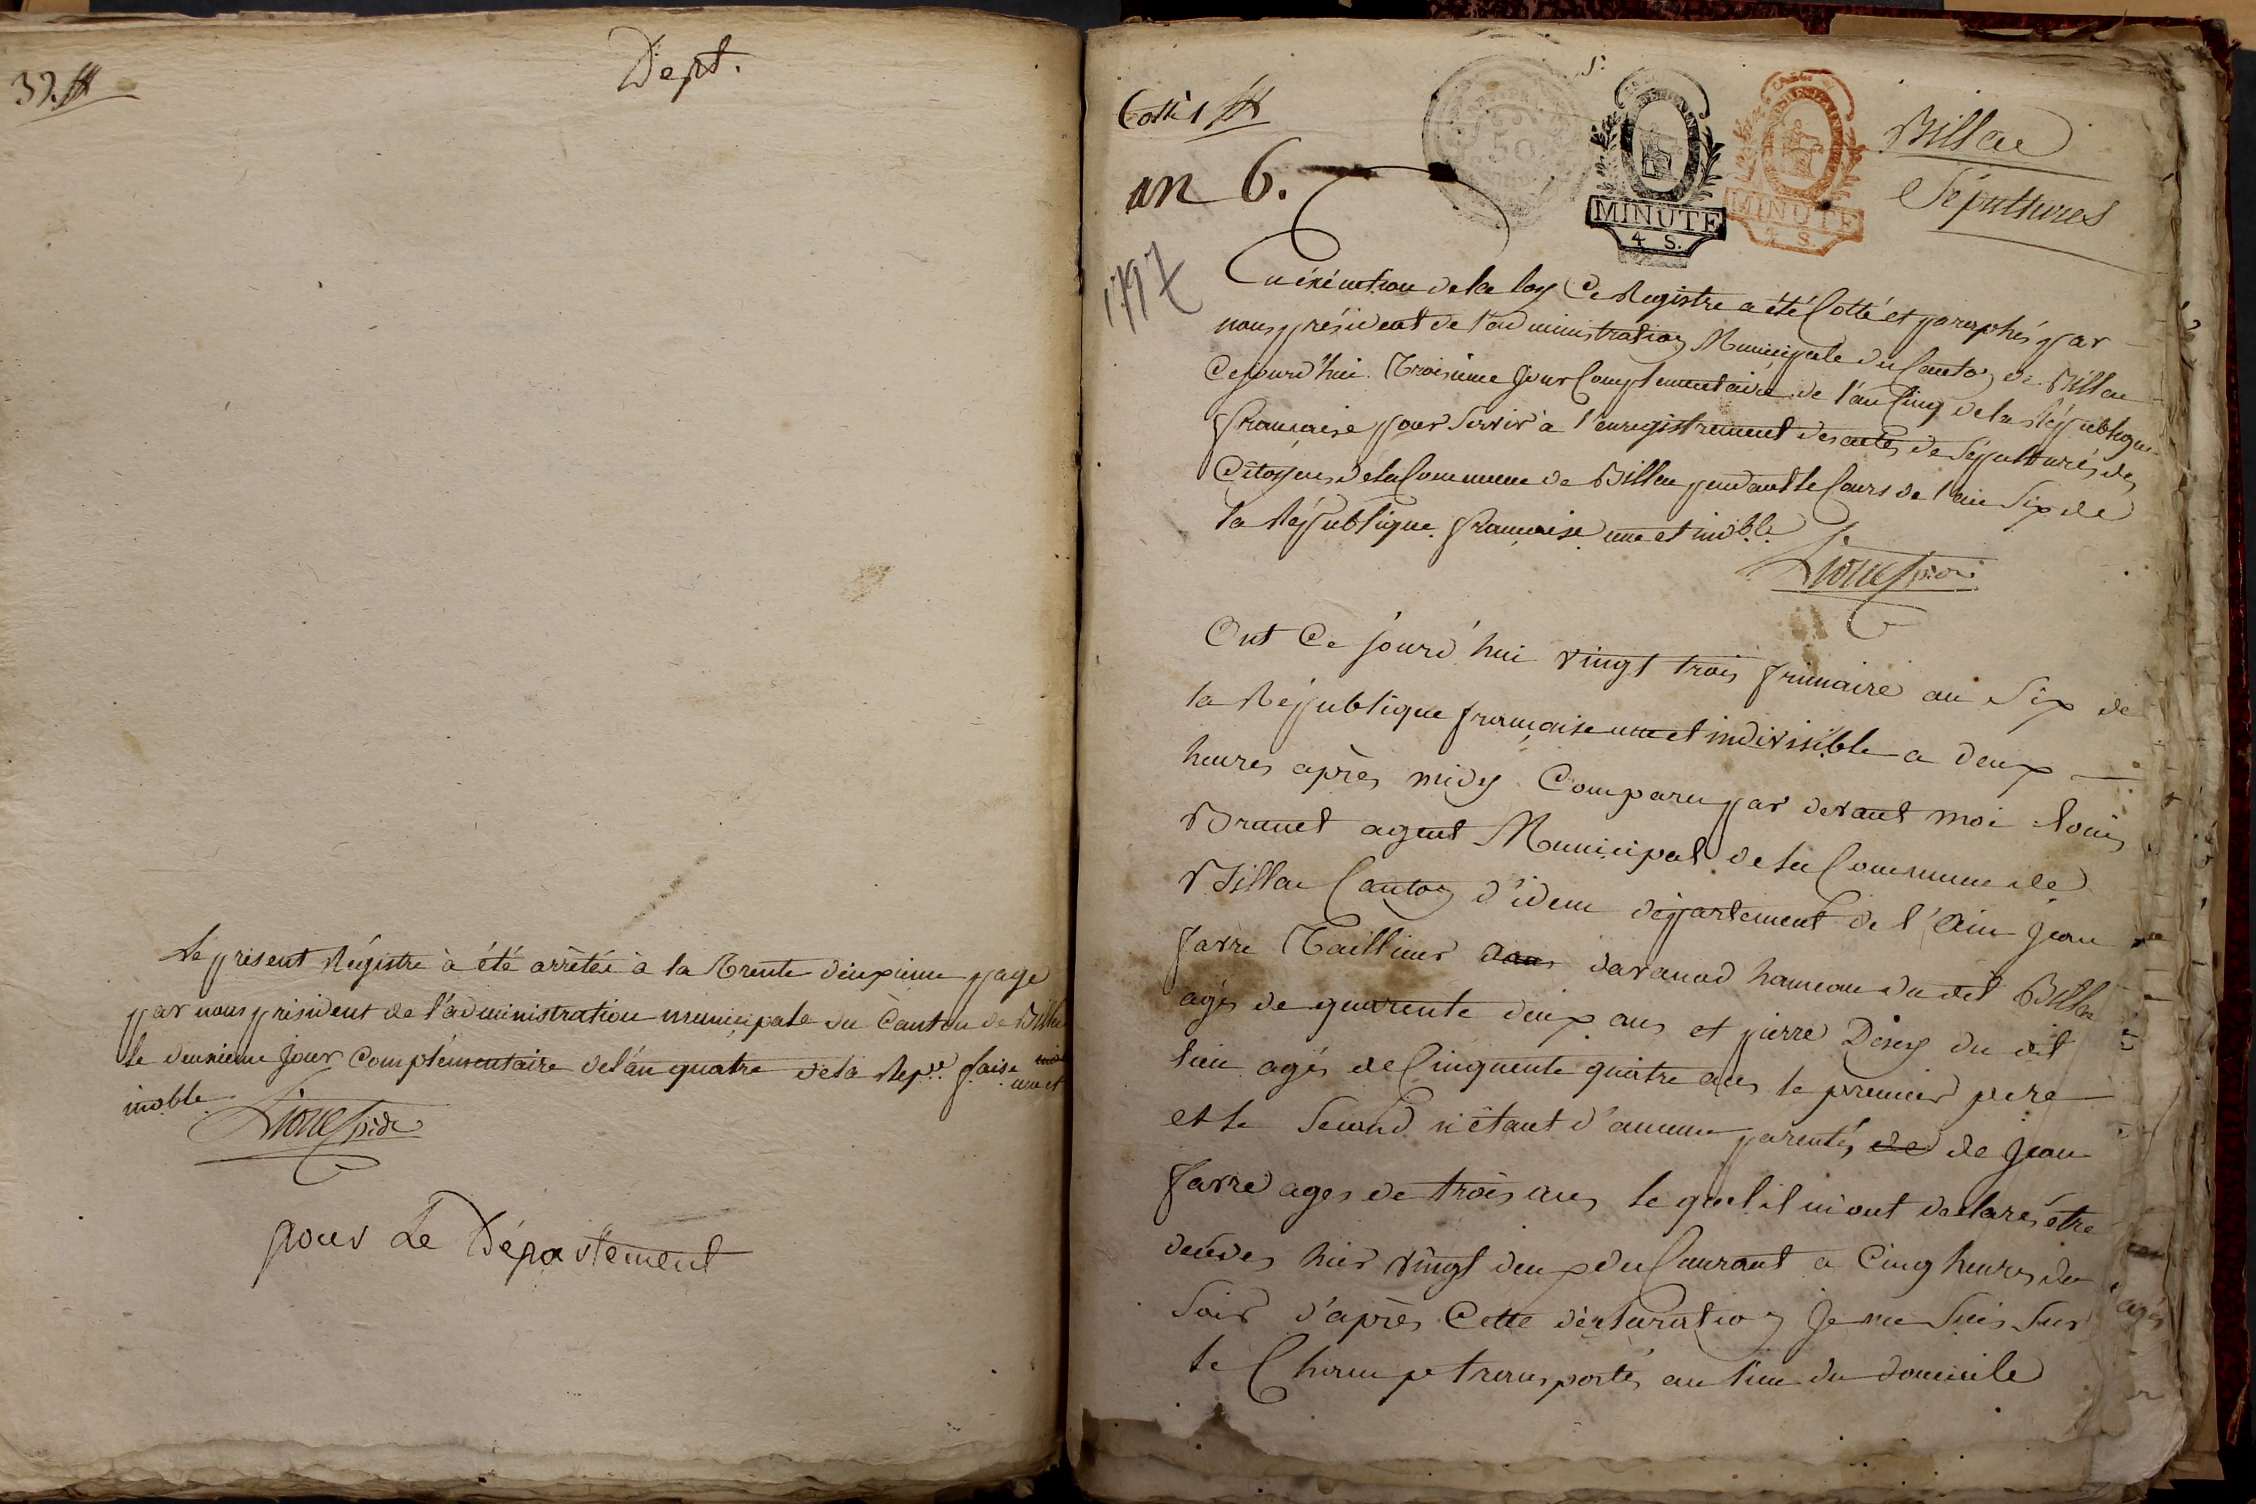 32.
Dept.
Le present Régistre à été arrêtée à la Trente deuxieme page
par nous president de l'administration municipale du Canton de Billia
le deuxieme Jour Complémentaire de l'an quatre de la Rep.ue f.aise une et
indble.
pour Le Département
Cotté 1
an 6.
1797
50
MINUTE
4 S.
MINUTE
4 S.
Billia
Sépultures
En éxécution de la loy Ce Registre a été Cotté et paraphés par
nous président de l'administration Municipale du Canton de Billia
Cejourd'hui Troisieme Jour Complementaire de l'an Cinq de la République
française pour Servir à l'enregistrement des actes de Sépultures des
Citoyens de la Commune de Billia pendant le Cours de l'an Six de
la République française une et indble.
Ont Ce jourd'hui vingt trois frimaire an Six de
la République française une et indivisible a deux
heures après midy Comparu par devant moi Louis
Brunet agent Municipal de la Commune de
Billia Canton d'idem département de l'Ain Jean
favre Taillieur davanod hameau du dit Billia
agés de quarente deux ans et pierre Désey du dit
lieu agés de Cinquente quatre ans le premier pere
et le Second n'étant d'aucune parentés de de Jean
favre ages de trois ans le quel il m'ont déclarés être
decedes hier vingt deux du Courant a Cinq heures du
Soir d'après Cette déclaration Je me Suis Sur
le Champ transportés au lieu du domicile
agés